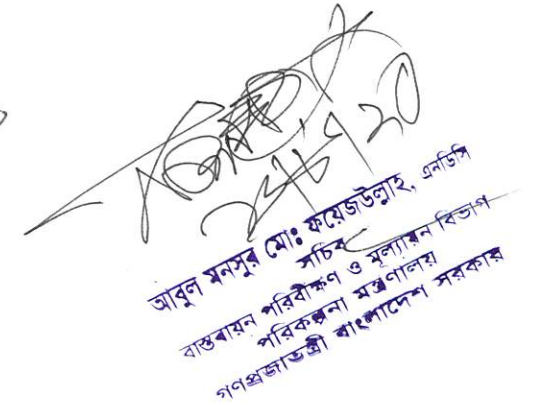 আবুল মনসুর মোঃ ফয়েজউল্লাহ, এনডিসি
সচিব
বাস্তবায়ন পরিবীক্ষণ ও মূল্যায়ন বিভাগ
পরিকল্পনা মন্ত্রণালয়
গণপ্রজাতন্ত্রী বাংলাদেশ সরকার